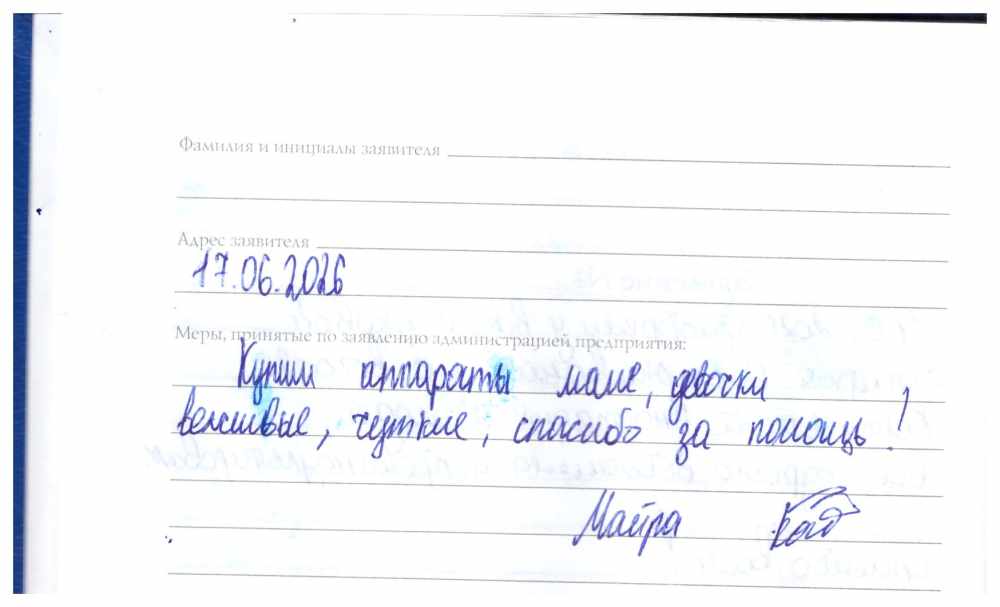 Фамилия и инициалы заявителя
Адрес заявителя
17.06.2026
Меры, принятые по заявлению администрацией предприятия:
Купили аппараты маме, девочки
вежливые, чуткие, спасибо за помощь!
Майра